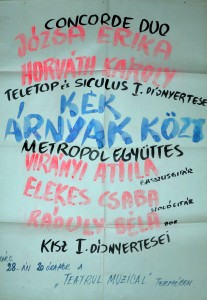 CONCORDE DUO
JÓZSA ERIKA
HORVÁTH KÁROLY
TELETOP ÉS SICULUS I. DÍJNYERTESEI
KÉK
ÁRNYAK KÖZT
METROPOL EGYÜTTES
VIRÁNYI ATTILA
BASSZUSGITÁR
ELEKES CSABA
SZÓLÓGITÁR
RÁDULY BÉLA
DOB
KISZ I. DÍJNYERTESEI
28.-ÁN 20 ÓRAKOR A
„TEATRUL MUZICAL" TERMÉBEN